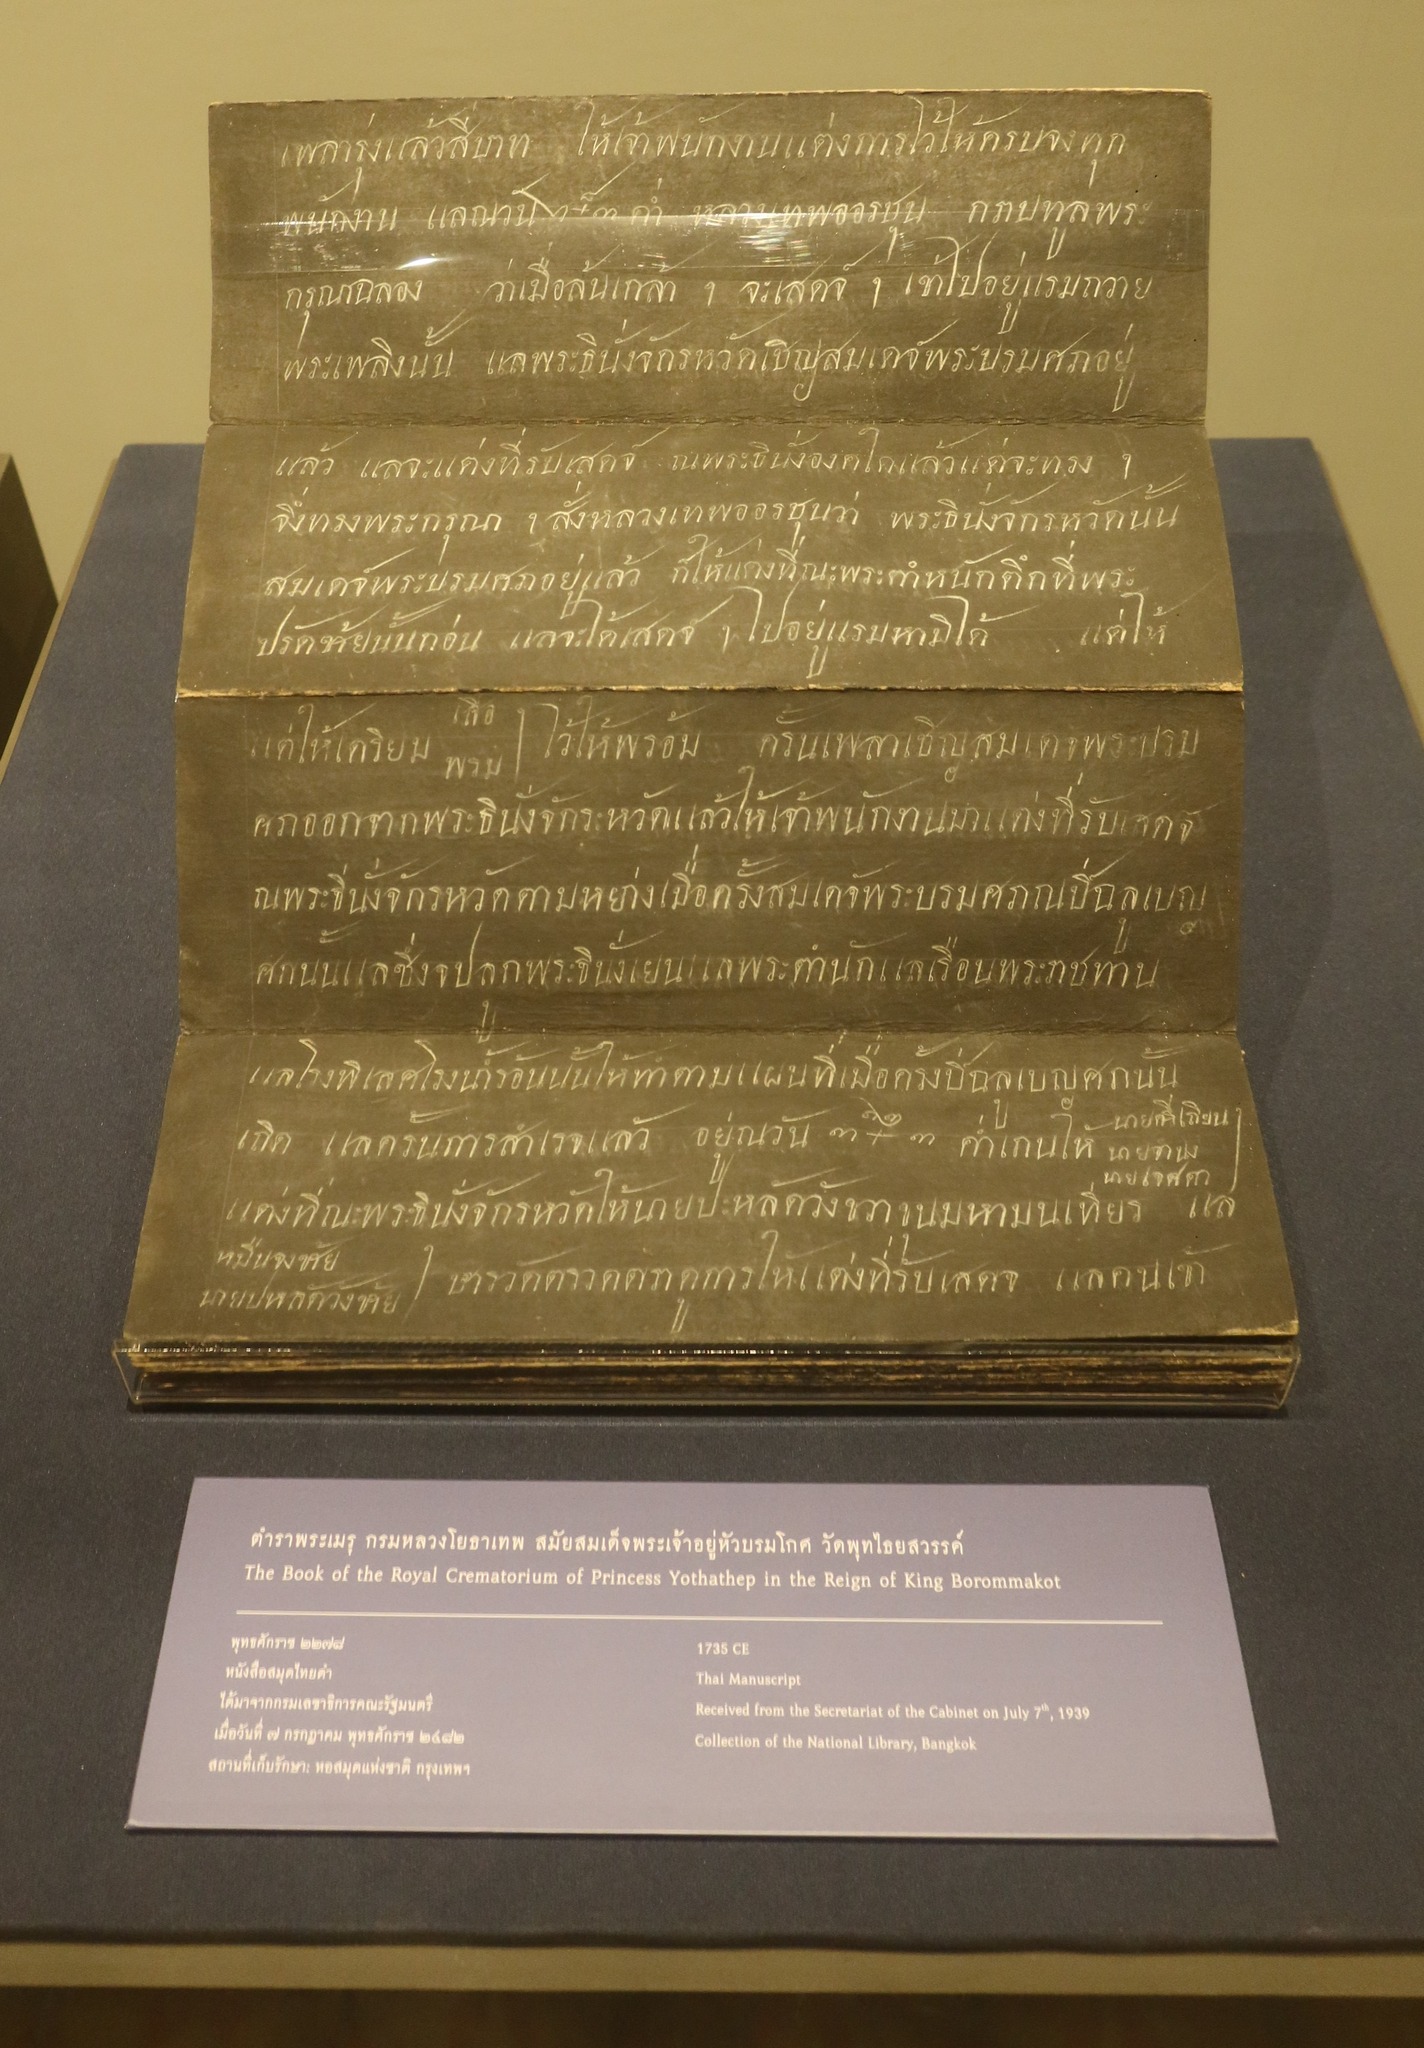 เพลารุ่งแล้วสี่บาท ให้เจ้าพนักงานแต่งการไว้ให้ครบจงทุก
พนักงาน แลณวัน ค่ำ หลวงเทพออรชุน กราบทูลพระ
กรุณาฉลอง ว่าเมื่อล้นเกล้า ฯ จะเสดจ์ ฯ เข้าไปอยู่แรมถวาย
พระเพลิงนั้น แลพระธินั่งจักรหวัดเชิญสมเดจ์พระบรมศภอยู่
แล้ว แลจะแต่งที่รับเสดจ์ ณพระธินั่งองคใดแล้วแต่จะทรง ฯ
จึ่งทรงพระกรุณา ฯ สั่งหลวงเทพออรชุนว่า พระธินั่งจักรหวัดนั้น
สมเดจ์พระบรมศภอยู่แล้ว ก็ให้แต่งที่ณะพระตำหนักตึกที่พระ
ปรัดชัยนั้นก่อน แลจะได้เสดจ ฯ ไปอยู่แรมหามิได้ แต่ให้
แต่ให้เตรียม เสื่อ พรม ไว้ให้พรอ้ม ครั้นเพลาเชิญสมเดจพระบรม
ศภออกจากพระธินั่งจักรหวัดแล้วให้เจ้าพนักงานมาแต่งที่รับเสดจ
ณพระธี่นั่งจักรหวัดตามหย่างเมื่อครั้งสมเดจ์พระบรมศภณปีฉลูเบญ
ศกนั้นแลซึ่งจปลูกพระธินั่งเยนแลพระตำนักแลเรือนพระราชทาน
แลโรงพิเลศโรงน้ำรอ้นนั้นให้ทำตามแผนที่เมื่อครั้งปีฉลูเบญศกนั้น
เถิด แลครั้นการสำเรจแล้ว อยู่ณวัน ค่ำเกนให้
แต่งที่ณะพระธินั่งจักรหวัดให้นายปะหลัดวังขวาขุนมหามนเทียร แล
หมื่นจงไชย
นายปหลัดวังซ้าย
ตรวดตราดูการให้แต่งที่รับเสดจ แลคนเข้า
ตำราพระเมรุ กรมหลวงโยธาเทพ สมัยสมเด็จพระเจ้าอยู่หัวบรมโกศ วัดพุทไธยสวรรค์
The Book of the Royal Crematorium of Princess Yothathep in the Reign of King Borommakot
พุทธศักราช ๒๒๗๘
หนังสือสมุดไทยดำ
ได้มาจากกรมเลขาธิการคณะรัฐมนตรี
เมื่อวันที่ ๗ กรกฎาคม พุทธศักราช ๒๔๘๒
สถานที่เก็บรักษา: หอสมุดแห่งชาติ กรุงเทพฯ
1735 CE
Thai Manuscript
Received from the Secretariat of the Cabinet on July 7th, 1939
Collection of the National Library, Bangkok